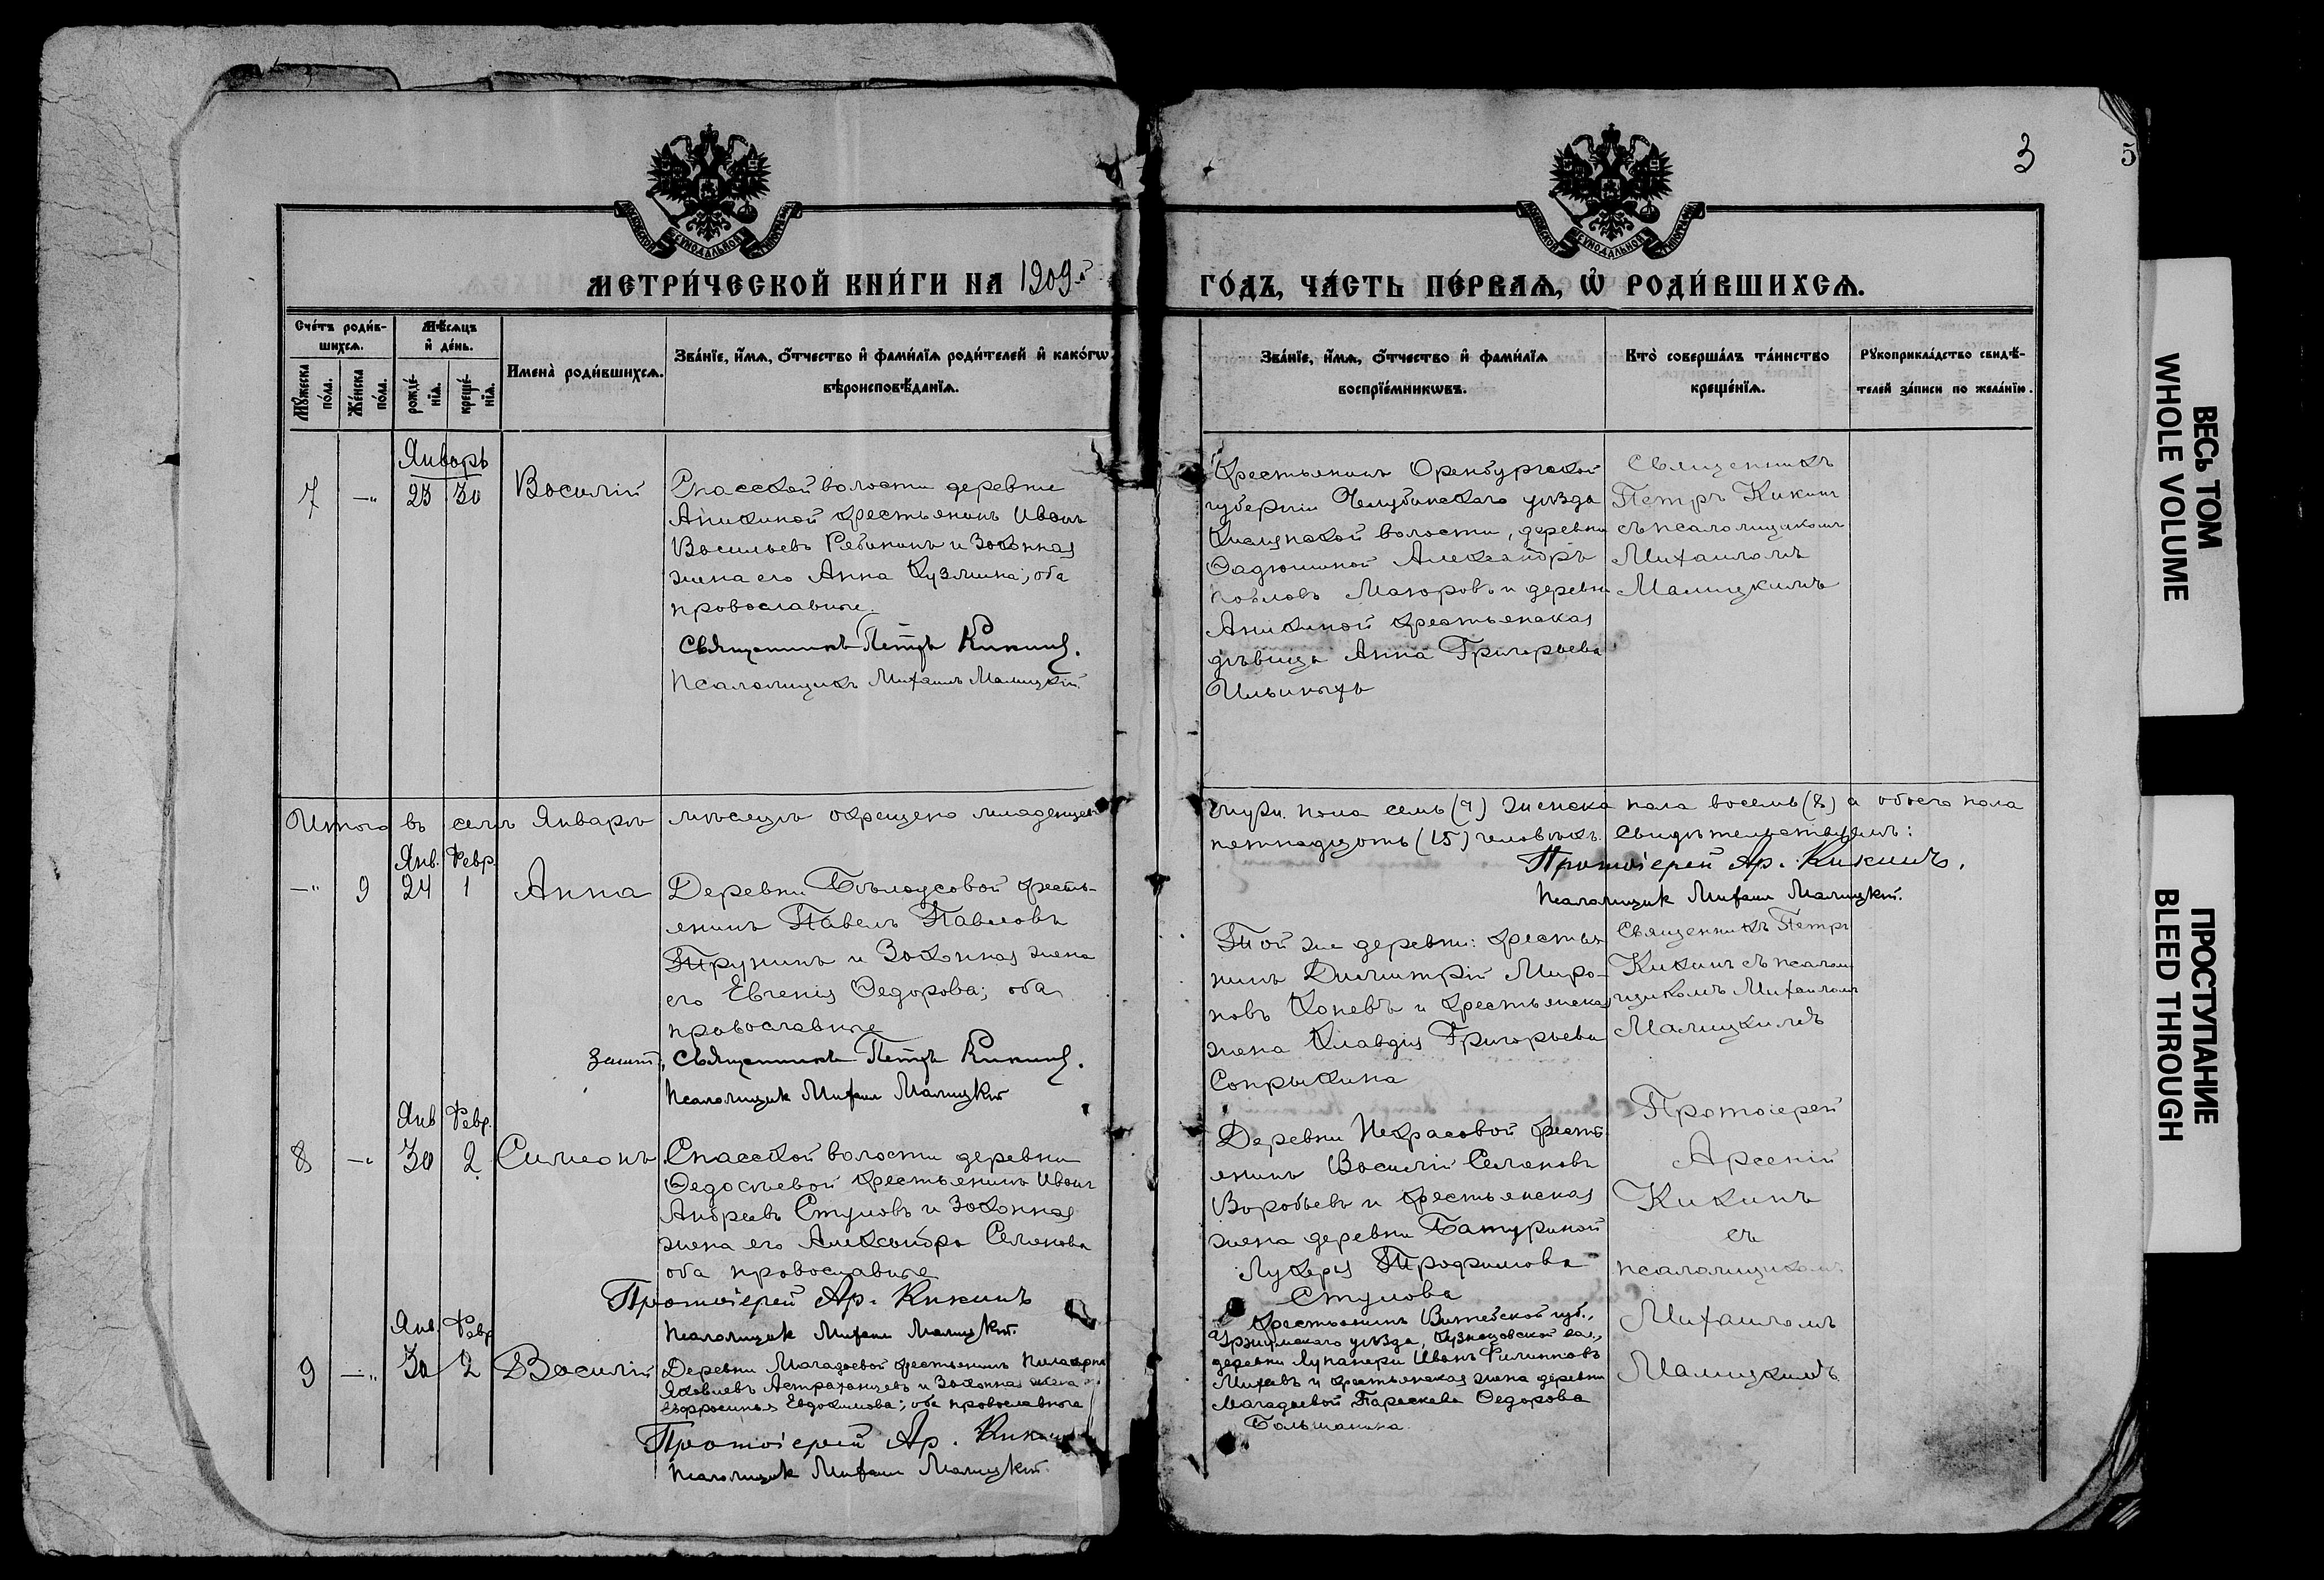 3
5
МЕТРИ́ЧЕСКОЙ КНИ́ГИ НА 1909 г.
ГО́ДЪ, ЧА́СТЬ ПЕ́РВАѦ, Ѡ҆ РОДИ́ВШИХСѦ.
Сче́тъ роди́в-
шихсѧ.
Мѣ́сѧцъ
и҆ де́нь.
Мꙋ́жеска
по́ла.
Же́нска
по́ла.
рожде́-
нїѧ.
креще́-
нїѧ.
Имена̀ роди́вшихсѧ.
Зва́нїе, и҆́мѧ, ѻ҆́тчество и҆ фами́лїѧ роди́телей и҆ како́гѡ
вѣроисповѣ́данїѧ.
Зва́нїе, и҆́мѧ, ѻ҆́тчество и҆ фами́лїѧ
воспрїе́мникѡвъ.
Кто̀ соверша́лъ та́инство
креще́нїѧ.
Рꙋкоприкла́дство свидѣ́-
телей за́писи по жела́нїю.
Январь
7 —„ 23 30 Василій
Спасской волости деревни
Аникиной крестьянинъ Иванъ
Васильевъ Рябининъ и законная
жена его Анна Кузмина; оба
православные.
Священникъ Петръ Кикинъ.
Псаломщикъ Михаилъ Малицкій.
Крестьянинъ Оренбургской
губерніи Челябинскаго уѣзда
волости, деревни
Фадюшиной Александръ
Павловъ Мазоровъ и деревни
Аникиной крестьянская
дѣвица Анна Григорьева
Ильиныхъ
Священникъ
Петръ Кикинъ
съ псаломщикомъ
Михаиломъ
Малицкимъ
Итого въ семъ Январѣ мѣсяцѣ окрещено младенцевъ
муж. пола семь (7) женска пола восемь (8) а обоего пола
пятнадцать (15) человѣкъ. Свидѣтельствуемъ:
Протоіерей Ар. Кикинъ.
Псаломщик Михаил Малицкій.
Янв. Февр.
—„ 9 24 1 Анна
Деревни Бѣлоусовой кресть-
янинъ Павелъ Павловъ
Трунинъ и законная жена
его Евгенія Федорова; оба
православные
Священникъ Петръ Кикинъ.
Псаломщик Михаил Малицкій
Той же деревни: крестья
нинъ Димитрій Миро-
новъ Коневъ и крестьянская
жена Клавдія Григорьева
Сопрыкина
Священникъ Петръ
Кикинъ съ псалом
щикомъ Михаиломъ
Малицкимъ
Янв Февр.
8 —„ 30 2 Симеонъ
Спасской волости деревни
Федосѣевой крестьянинъ Иванъ
Андреевъ Стуловъ и законная
жена его Александра Семенова
оба православные
Протоіерей Ар. Кикинъ
Псаломщик Михаил Малицкій.
Деревни Некрасовой крест-
янинъ Василій Семеновъ
Воробьевъ и крестьянская
жена деревни Батуриной
Лукерья Трофимова
Стулова
Протоіерей
Арсеній
Кикинъ
съ
псаломщикомъ
Михаиломъ
Малицкимъ
Янв. Февр
9 —„ 30 2 Василій
Деревни крестьянинъ
Яковлевъ Астраханцевъ и законная жена
Евфросинья Евдокимова; оба православные
Протоіерей Ар. Кикинъ
Псаломщик Михаил Малицкій.
Крестьянинъ губ.,
Уржумскаго уѣзда, Кузнецовской вол.,
деревни Иванъ Филипповъ
Михѣевъ и крестьянская жена деревни
Параскева Федорова
Большанина
ВЕСЬ ТОМ
WHOLE VOLUME
ПРОСТУПАНИЕ
BLEED THROUGH